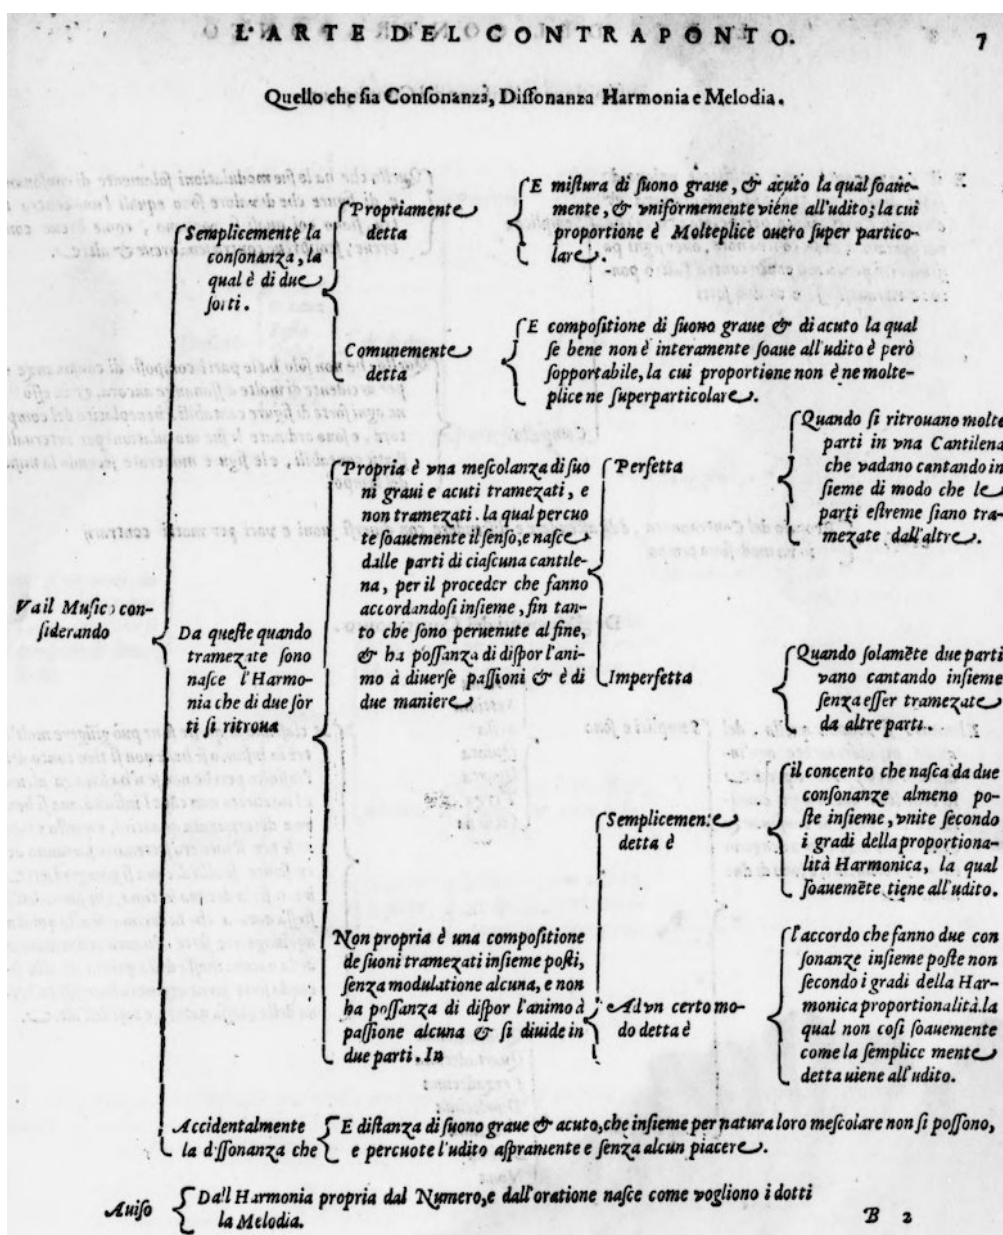 L'ARTE DEL CONTRAPONTO. 7
Quello che sia Consonanza, Dissonanza Harmonia e Melodia.
Va il Musico con-
siderando
Semplicemente la
consonanza, la
qual è di due
sorti.
Propriamente
detta
E mistura di suono graue, & acuto la qual soaue-
mente, & vniformemente viene all'udito; la cui
proportione è Molteplice ouero super partico-
lare.
Comunemente
detta
E compositione di suono graue & di acuto la qual
se bene non è interamente soaue all'udito è però
sopportabile, la cui proportione non è ne molte-
plice ne superparticolare.
Da queste quando
tramezate sono
nasce l'Harmo-
nia che di due sor
ti si ritroua
Propria è vna mescolanza di suo
ni graui e acuti tramezati, e
non tramezati. la qual percuo
te soauemente il senso, e nasce
dalle parti di ciascuna cantile-
na, per il proceder che fanno
accordandosi insieme, fin tan-
to che sono peruenute al fine,
& ha possanza di dispor l'ani-
mo à diuerse passioni & è di
due maniere
Perfetta
Quando si ritrouano molte
parti in vna Cantilena
che vadano cantando in
sieme di modo che le
parti estreme siano tra-
mezate dall'altre.
Imperfetta
Quando solamẽte due parti
vano cantando insieme
senza esser tramezate
da altre parti.
Non propria è una compositione
de suoni tramezati insieme posti,
senza modulatione alcuna, e non
ha possanza di dispor l'animo à
passione alcuna & si diuide in
due parti. In
Semplicemente
detta è
il concento che nasca da due
consonanze almeno po-
ste insieme, vnite secondo
i gradi della proportiona-
lità Harmonica, la qual
soauemẽte tiene all'udito.
Ad vn certo mo-
do detta è
l'accordo che fanno due con
sonanze insieme poste non
secondo i gradi della Har-
monica proportionalità. la
qual non cosi soauemente
come la semplice mente
detta uiene all'udito.
Accidentalmente
la dissonanza che
E distanza di suono graue & acuto, che insieme per natura loro mescolare non si possono,
e percuote l'udito aspramente e senza alcun piacere.
Auiso
Dall Harmonia propria dal Numero, e dall'oratione nasce come vogliono i dotti
la Melodia.
B 2